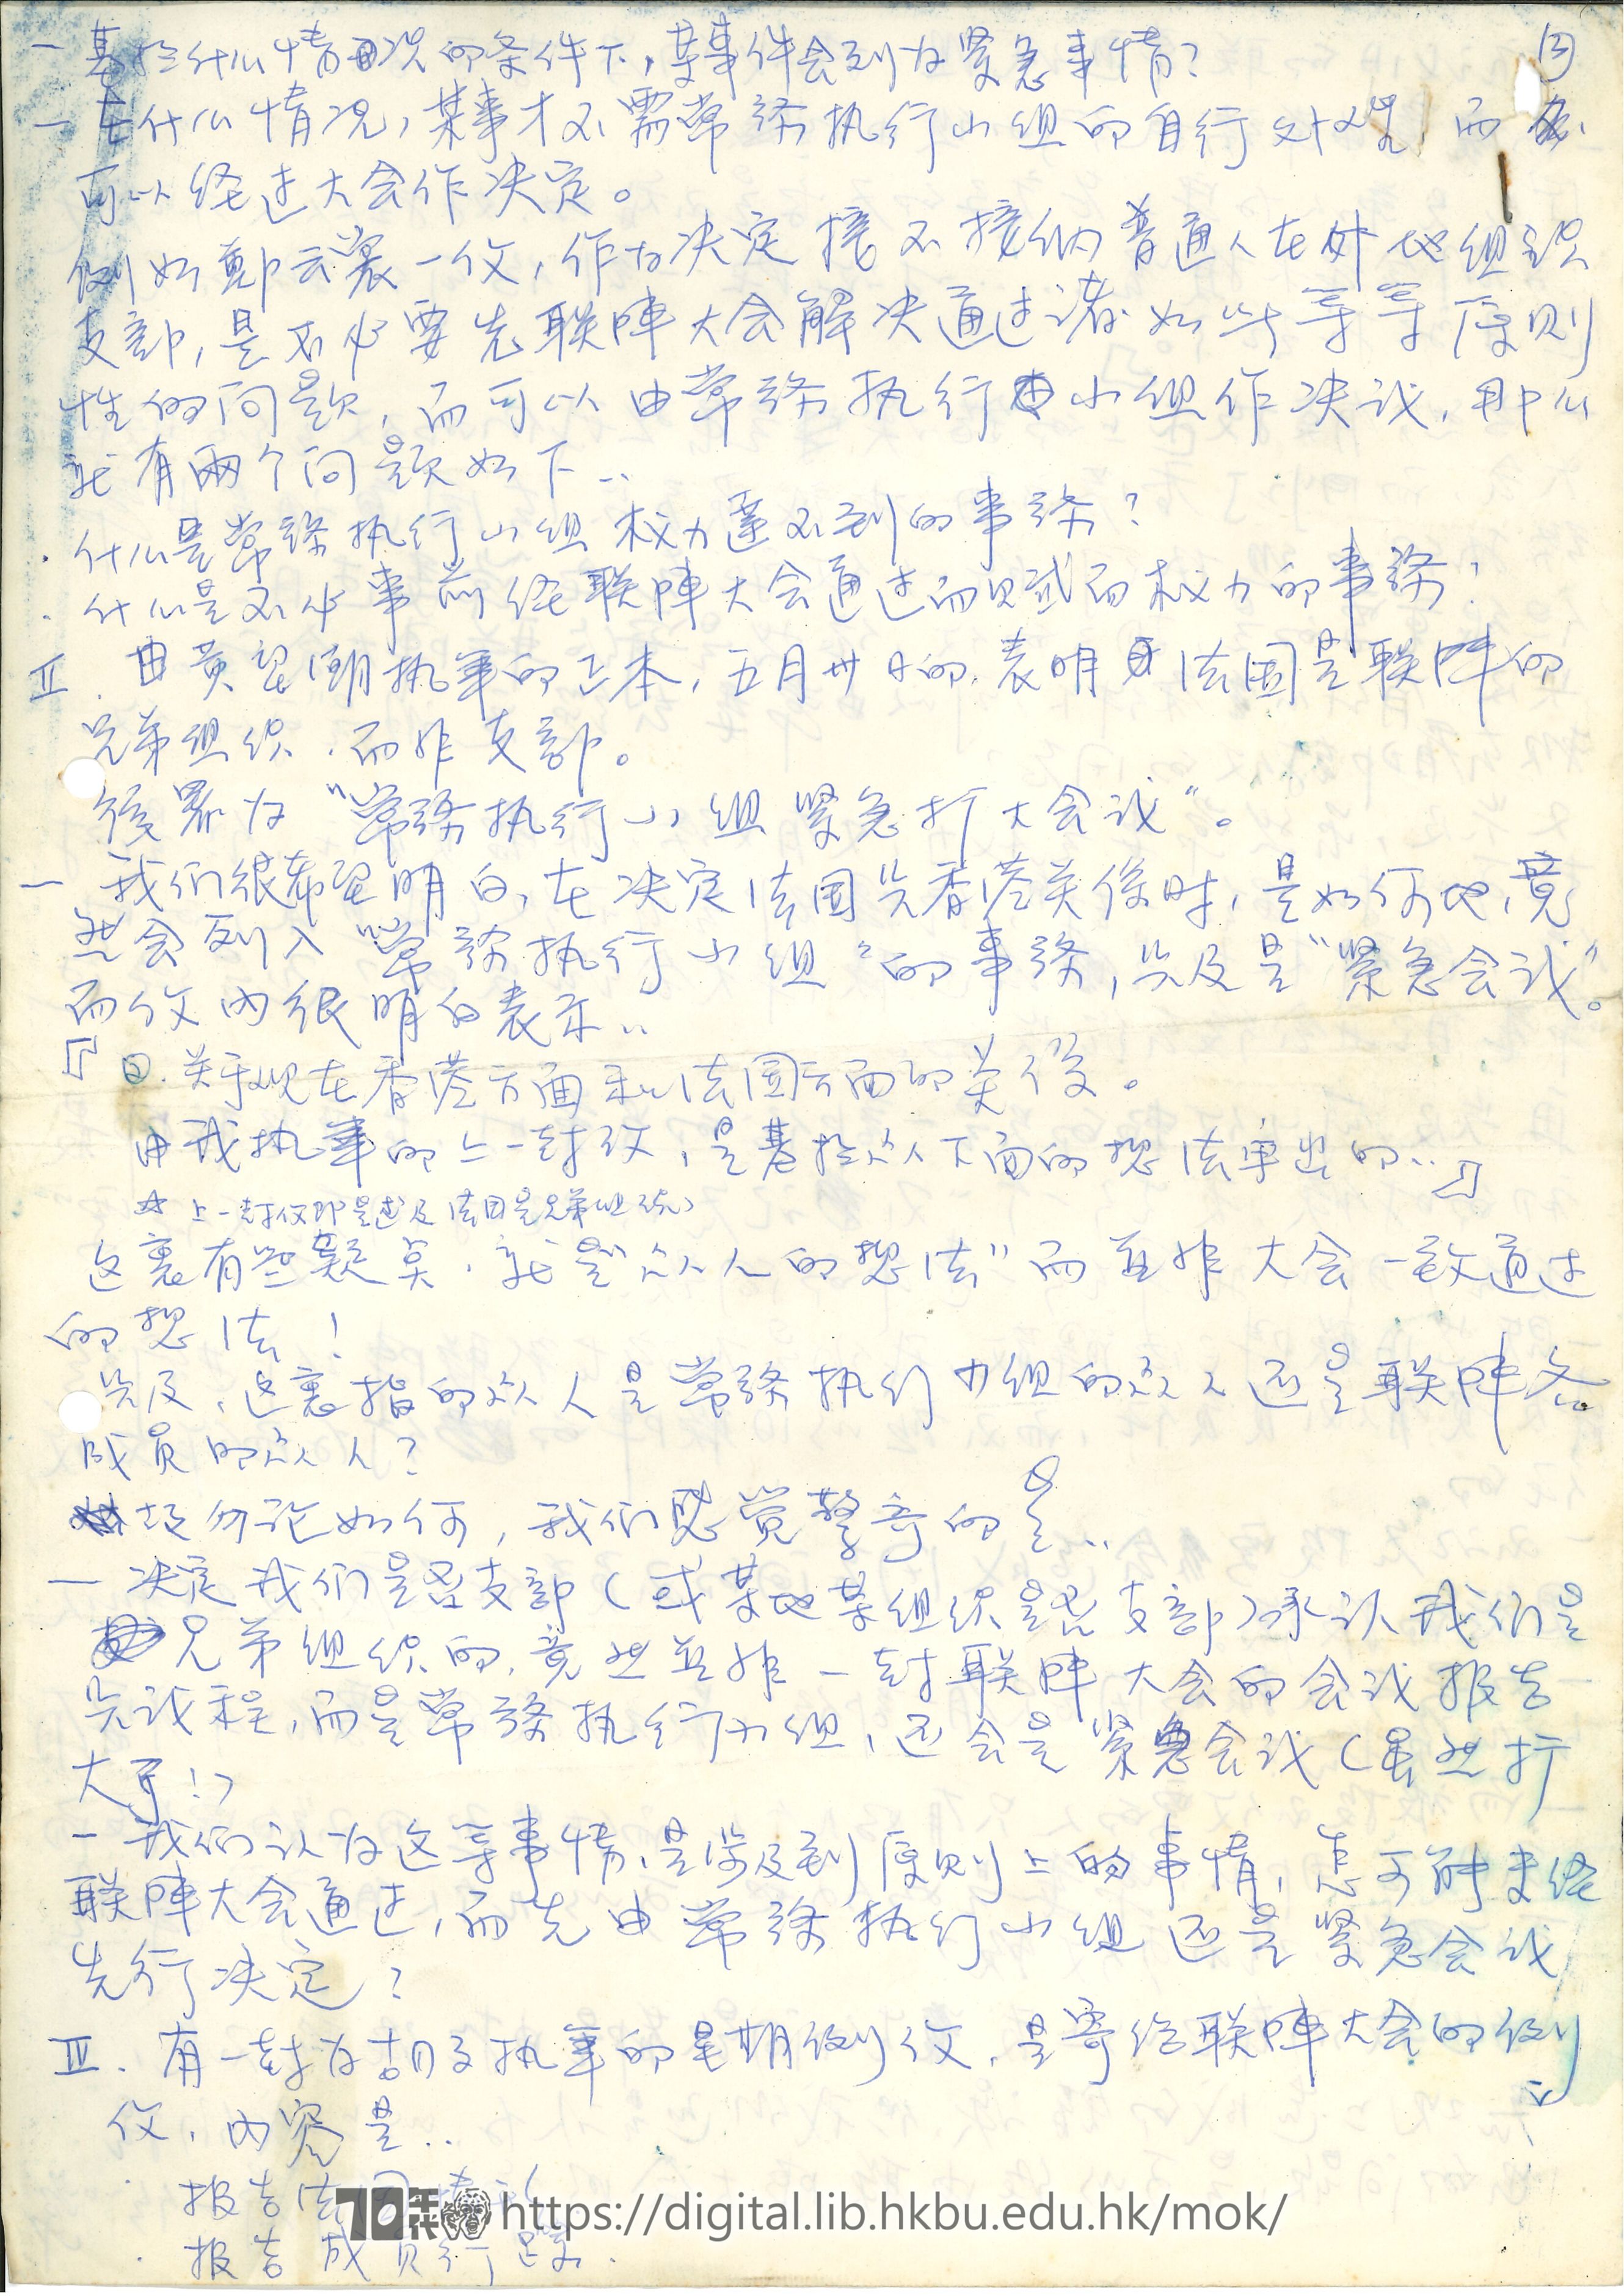 一 基於什么情况的条件下，某事件会列为紧急事情？
③
一 在什么情况，某事才不需常務执行小组的自行处理 而
可以经过大会作决定。
例如鄭云裳一仪，作为决定接不接纳普通人在外地组织
支部，是不必要先联陣大会解决通过諸如此等等原则
性的问题，而可以由常務执行小组作决议，那么
我有兩个问题如下‥
· 什么是常務执行小组权力達不到的事務？
· 什么是不必事前经联陣大会通过而赋而权力的事務？
II. 由黄望潮执筆的正本，五月卅日的，表明法国是联陣的
兄弟组织，而非支部。
後署为“常務执行小组紧急扩大会议”。
一 我们很希望明白，在决定法国与香港关係时，是如何地，竟
然会列入“常務执行小组”的事務，与及是“紧急会议”。
而仪内很明白表示‥
『 曰．关于现在香港方面和法国方面的关係。
由我执筆的上一封仪，是基於众人下面的想法寫出的‥』
* 上一封仪即是述及法国是兄弟组织）
这裏有些疑莫．就是“众人的想法”而並非大会一致通过
的想法！
与及，这裏指的众人是常務执行小组的众人还是联陣各
成员的众人？
勿论如何，我们感觉驚奇的是‥
一 决定我们是否支部（或某地某组织是否支部）承认我们是
兄弟组织的，竟然並非一封联陣大会的会议报告
与议程，而是常務执行小组，还会是紧急会议（虽然扩
大了！）
一 我们认为这等事情，是涉及到原则上的事情，怎可能未经
联陣大会通过，而先由常務执行小组还是紧急会议
先行决定？
III. 有一封为胡子执筆的星期例仪，是寄给联陣大会的例
仪，内容是‥
· 报告法国情况
· 报告成员行踪．
70年代 https://digital.lib.hkbu.edu.hk/mok/